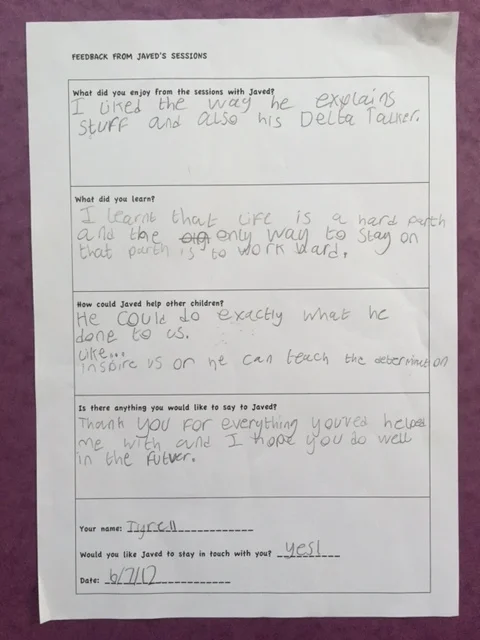 FEEDBACK FROM JAVED'S SESSIONS
What did you enjoy from the sessions with Javed?
I liked the way he explains
stuff and also his Delta Talker.
What did you learn?
I learnt that life is a hard parth
and the only way to stay on
that parth is to work ward.
How could Javed help other children?
He could do exactly what he
done to us.
Like...
inspire us or he can teach the determination
Is there anything you would like to say to Javed?
Thank you for everything youved helped
me with and I hope you do well
in the futuer.
Your name: Tyrell
Would you like Javed to stay in touch with you? yes!
Date: 6/7/17